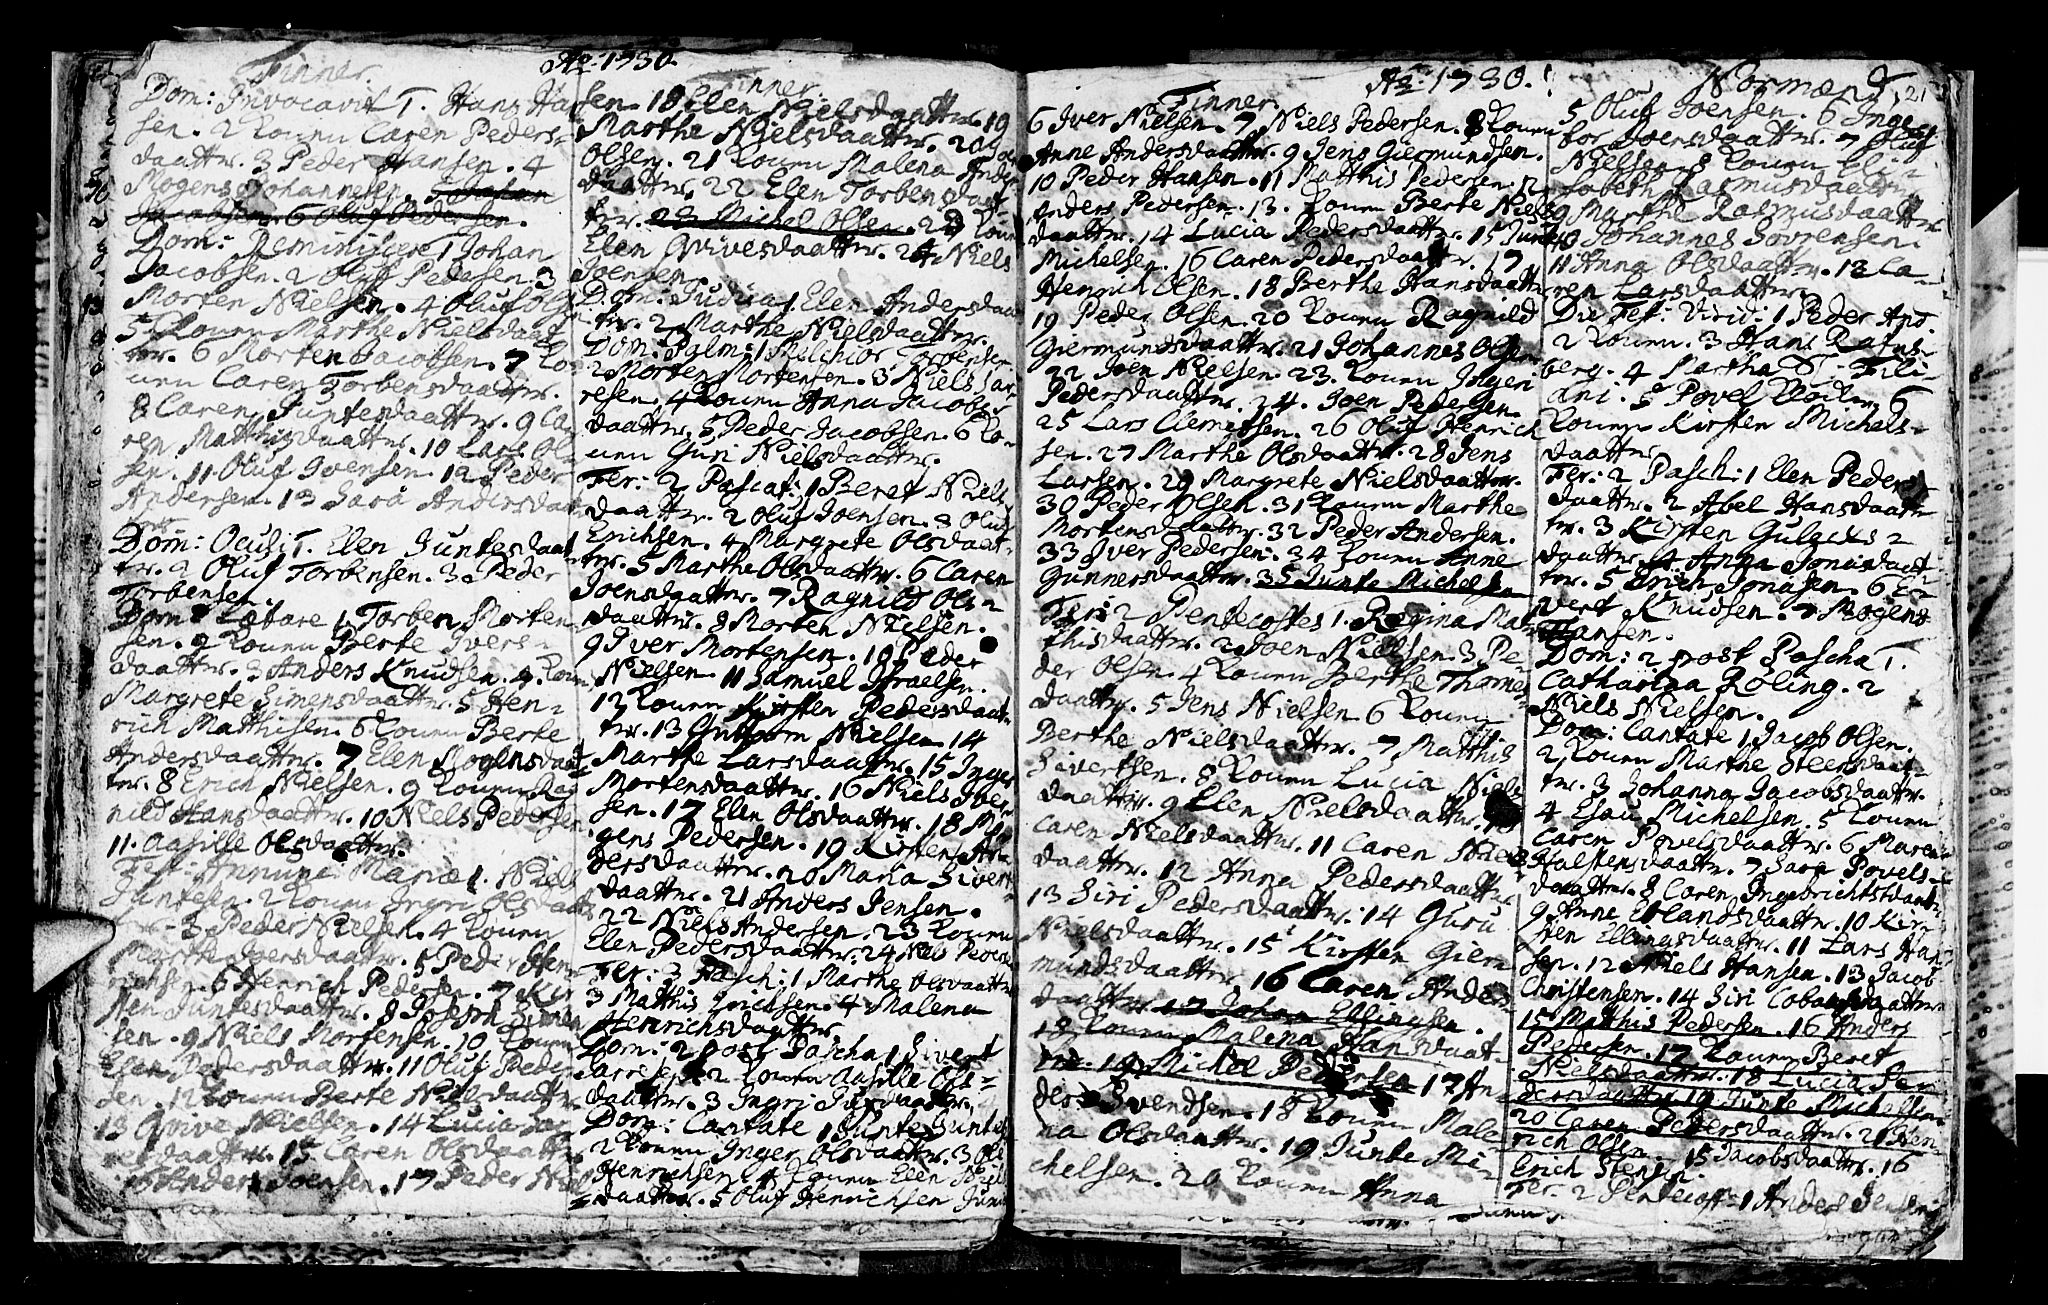 Ao. 1730.
Finner.
Dom: Invocavit 1. Hans Han
sen. 2 Konen Caren Peders-
daatter. 3 Peder Hansen. 4
Mogens Johannesen. Johan
Jacobsen. 6 Oluf Pedersen.
Dom: Reminiscere 1 Johan
Jacobsen. 2 Oluf Pedersen. 3
Morten Nielsen. 4 Oluf Olsen
5 Konen Marthe Nielsdaat
ter. 6 Morten Jacobsen. 7 Ko-
nen Caren Torbensdaatter.
8 Caren Juntesdaatter. 9 Ca
ren Matthisdaatter. 10 Lars Ol
sen. 11 Oluf Joensen. 12 Peder
Andersen. 13 Sara Andersdaat
Dom: Oculi 1. Elen Juntesdaat
ter. 2 Oluf Torbensen. 3 Peder
Torbensen.
Dom: Lætare 1 Torben Morten
sen. 2 Konen Berte Ivers-
daatter. 3 Anders Knudsen. 4 Konen
Margrete Simensdaatter. 5 Hen-
rich Matthisen. 6 Konen Berte
Andersdaatter. 7 Elen Mogensdaat
ter. 8 Erich Nielsen. 9 Konen Rag
nild Hansdaatter. 10 Niels Pedersen
11. Aasille Olsdaatter.
Fest: Annunc: Mariæ 1. Niels
Juntesen. 2 Konen Ingri Olsdaat
ter. 3 Peder Nielsen. 4 Konen
Marthe Joensdaatter. 5 Peder Hen
richsen. 6 Henrich Pedersen. 7 Kir
sten Juntesdaatter. 8 Joseph Simen
sen. 9 Niels Mortensen. 10 Konen
Elen Pedersdaatter. 11 Oluf Peder
sen. 12 Konen Berte Nielsdaatter
13 Qvive Nielsen. 14 Lucia Lar
sdaatter. 15 Caren Olsdaatter
16 Anders Joensen. 17 Peder Niel
Finner.
sen. 18 Elen Nielsdaatter. 19
Marthe Nielsdaatter. 20 Joen
Olsen. 21 Konen Malena Anders
daatter. 22 Elen Torbensdaat
ter. 23 Michel Olsen. 23 Konen
Elen Qvivesdaatter. 24 Niels
Joensen.
Dom: Judica 1. Elen Andersdaat
ter. 2 Marthe Nielsdaatter.
Dom: Palm: 1 Melchior Torbensen
2 Morten Mortensen. 3 Niels Lar
sen. 4 Konen Anna Jacobs
daatter. 5 Peder Jacobsen. 6 Ko-
nen Guri Nielsdaatter.
Fer: 2 Pascat: 1 Beret Niels
daatter. 2 Oluf Joensen. 3 Oluf
Erichsen. 4 Margrete Olsdaat-
ter. 5 Marthe Olsdaatter. 6 Caren
Joensdaatter. 7 Ragnild Ols-
daatter. 8 Morten Nielsen.
9 Iver Mortensen. 10 Peder
Nielsen. 11 Samuel Israelsen.
12 Konen Kirsten Pedersdaat-
ter. 13 Guttorm Nielsen. 14
Marthe Larsdaatter. 15 Inger
Mortensdaatter. 16 Niels Iver
sen. 17 Elen Olsdaatter. 18 Mo
gens Pedersen. 19 Kirsten An
dersdaatter. 20 Maria Sivert-
daatter. 21 Anders Jensen.
22 Niels Andersen. 23 Konen
Elen Pedersdaatter. 24 Niels Pedersen
Fer: 3 Pasch: 1 Marthe Olsdaatter
3 Matthis Erichsen. 4 Malena
Henrichsdaatter
Dom: 2 post Pascha 1 Sivert
Larsen. 2 Konen Aasille Ols-
daatter. 3 Ingri Iversdaatter.
Dom: Cantate 1 Junte Juntes
2 Konen Inger Olsdaatter. 3 Ole
Henrichsen. 4 Konen Elen Niels
daatter. 5 Oluf Henrichsen
Ao. 1730.
Finner.
6 Iver Nielsen. 7 Niels Pedersen. 8 Konen
Anne Andersdaatter. 9 Jens Giermundsen.
10 Peder Hansen. 11 Matthis Pedersen. 12
Anders Pedersen. 13. Konen Berte Niels
daatter. 14 Lucia Pedersdaatter. 15 Junte
Michelsen. 16 Caren Pedersdaatter. 17
Henrich Olsen. 18 Berthe Hansdaatter
19 Peder Olsen. 20 Konen Ragnild
Giermundsdaatter. 21 Johannes Olsen
22 Joen Nielsen. 23. Konen Ingeri
Pedersdaatter. 24. Joen Pedersen.
25 Lars Clemetsen. 26 Oluf Henrich
sen. 27 Marthe Olsdaatter. 28 Jens
Larsen. 29 Margrete Nielsdaatter.
30 Peder Olsen. 31 Konen Marthe
Mortensdaatter. 32 Peder Andersen.
33 Iver Pedersen. 34 Konen Anne
Gunnersdaatter. 35 Junte Michelsen
Feri 2 Pentecostes 1. Regina Mat
thisdaatter. 2 Joen Nielsen. 3 Pe-
der Olsen. 4 Konen Berthe Thomes
daatter. 5 Jens Nielsen. 6 Konen
Berthe Nielsdaatter. 7 Matthis
Sivertsen. 8 Konen Lucia Niels
daatter. 9 Elen Nielsdaatter. 10
Caren Nielsdaatter. 11 Caren Niels
daatter. 12 Anna Pedersdaatter
13 Siri Pedersdaatter. 14 Guru
Nielsdaatter. 15 Kirsten Gier
mundsdaatter. 16 Caren Anders
daatter. 17 Johan Ellingsen.
18 Konen Malena Hansdaat-
ter. 19 Michel Pedersen 17 An-
ders Svendsen. 18 Konen Male-
na Olsdaatter. 19 Junte Mi-
chelsen. 20 Konen Anna
Normænd
5 Oluf Joensen. 6 Inge-
bor Joensdaatter. 7 Oluf
Nielsen. 8 Konen Eli-
sabeth Rasmusdaatter
9 Marthe Rasmusdaatter
10 Johannes Sørensen.
11 Anna Olsdaatter. 12 Ca-
ren Larsdaatter.
Die Fest: Virid: 1 Peder And.
2 Konen. 3 Hans Rafns-
berg. 4 Martha S. Fili-
ani. 5 Povel 6
Konen Kirsten Michels-
daatter
Fer: 2 Pasch: 1 Elen Peders
daatter. 2 Abel Hansdaat-
ter. 3 Kirsten Gulachs-
daatter. 4 Anna Jonisdaat
ter. 5 Erich Jonasen. 6 E-
vert Knudsen. 7 Mogens
Hansen.
Dom: 2 post Pascha 1.
Catharina Röling. 2
Niels Nielsen.
Dom: Cantate 1 Jacob Olsen.
2 Konen Marthe Steensdaat-
ter. 3 Johanna Jacobsdaatter.
4 Esau Michelsen. 5 Konen
Caren Povelsdaatter. 6 Maren
Halstensdaatter. 7 Sara Povels-
daatter. 8 Caren Ingebrichtsdaat-
9 Anne Erlandsdaatter. 10 Kir
sten Ellingsdaatter. 11 Lars Han
sen. 12 Niels Hansen. 13 Jacob
Christensen. 14 Siri
15 Matthis Pedersen. 16 Anders
Pedersen. 17 Konen Beret
Nielsdaatter. 18 Lucia Pe
dersdaatter 19 Junte Michelsen
20 Caren Pedersdaatter. 21 Hen-
rich Olsen. 15 Jacobsdaatter. 16
Erich Stensen.
Fer: 2 Pentecost: 1 Anders Jensen